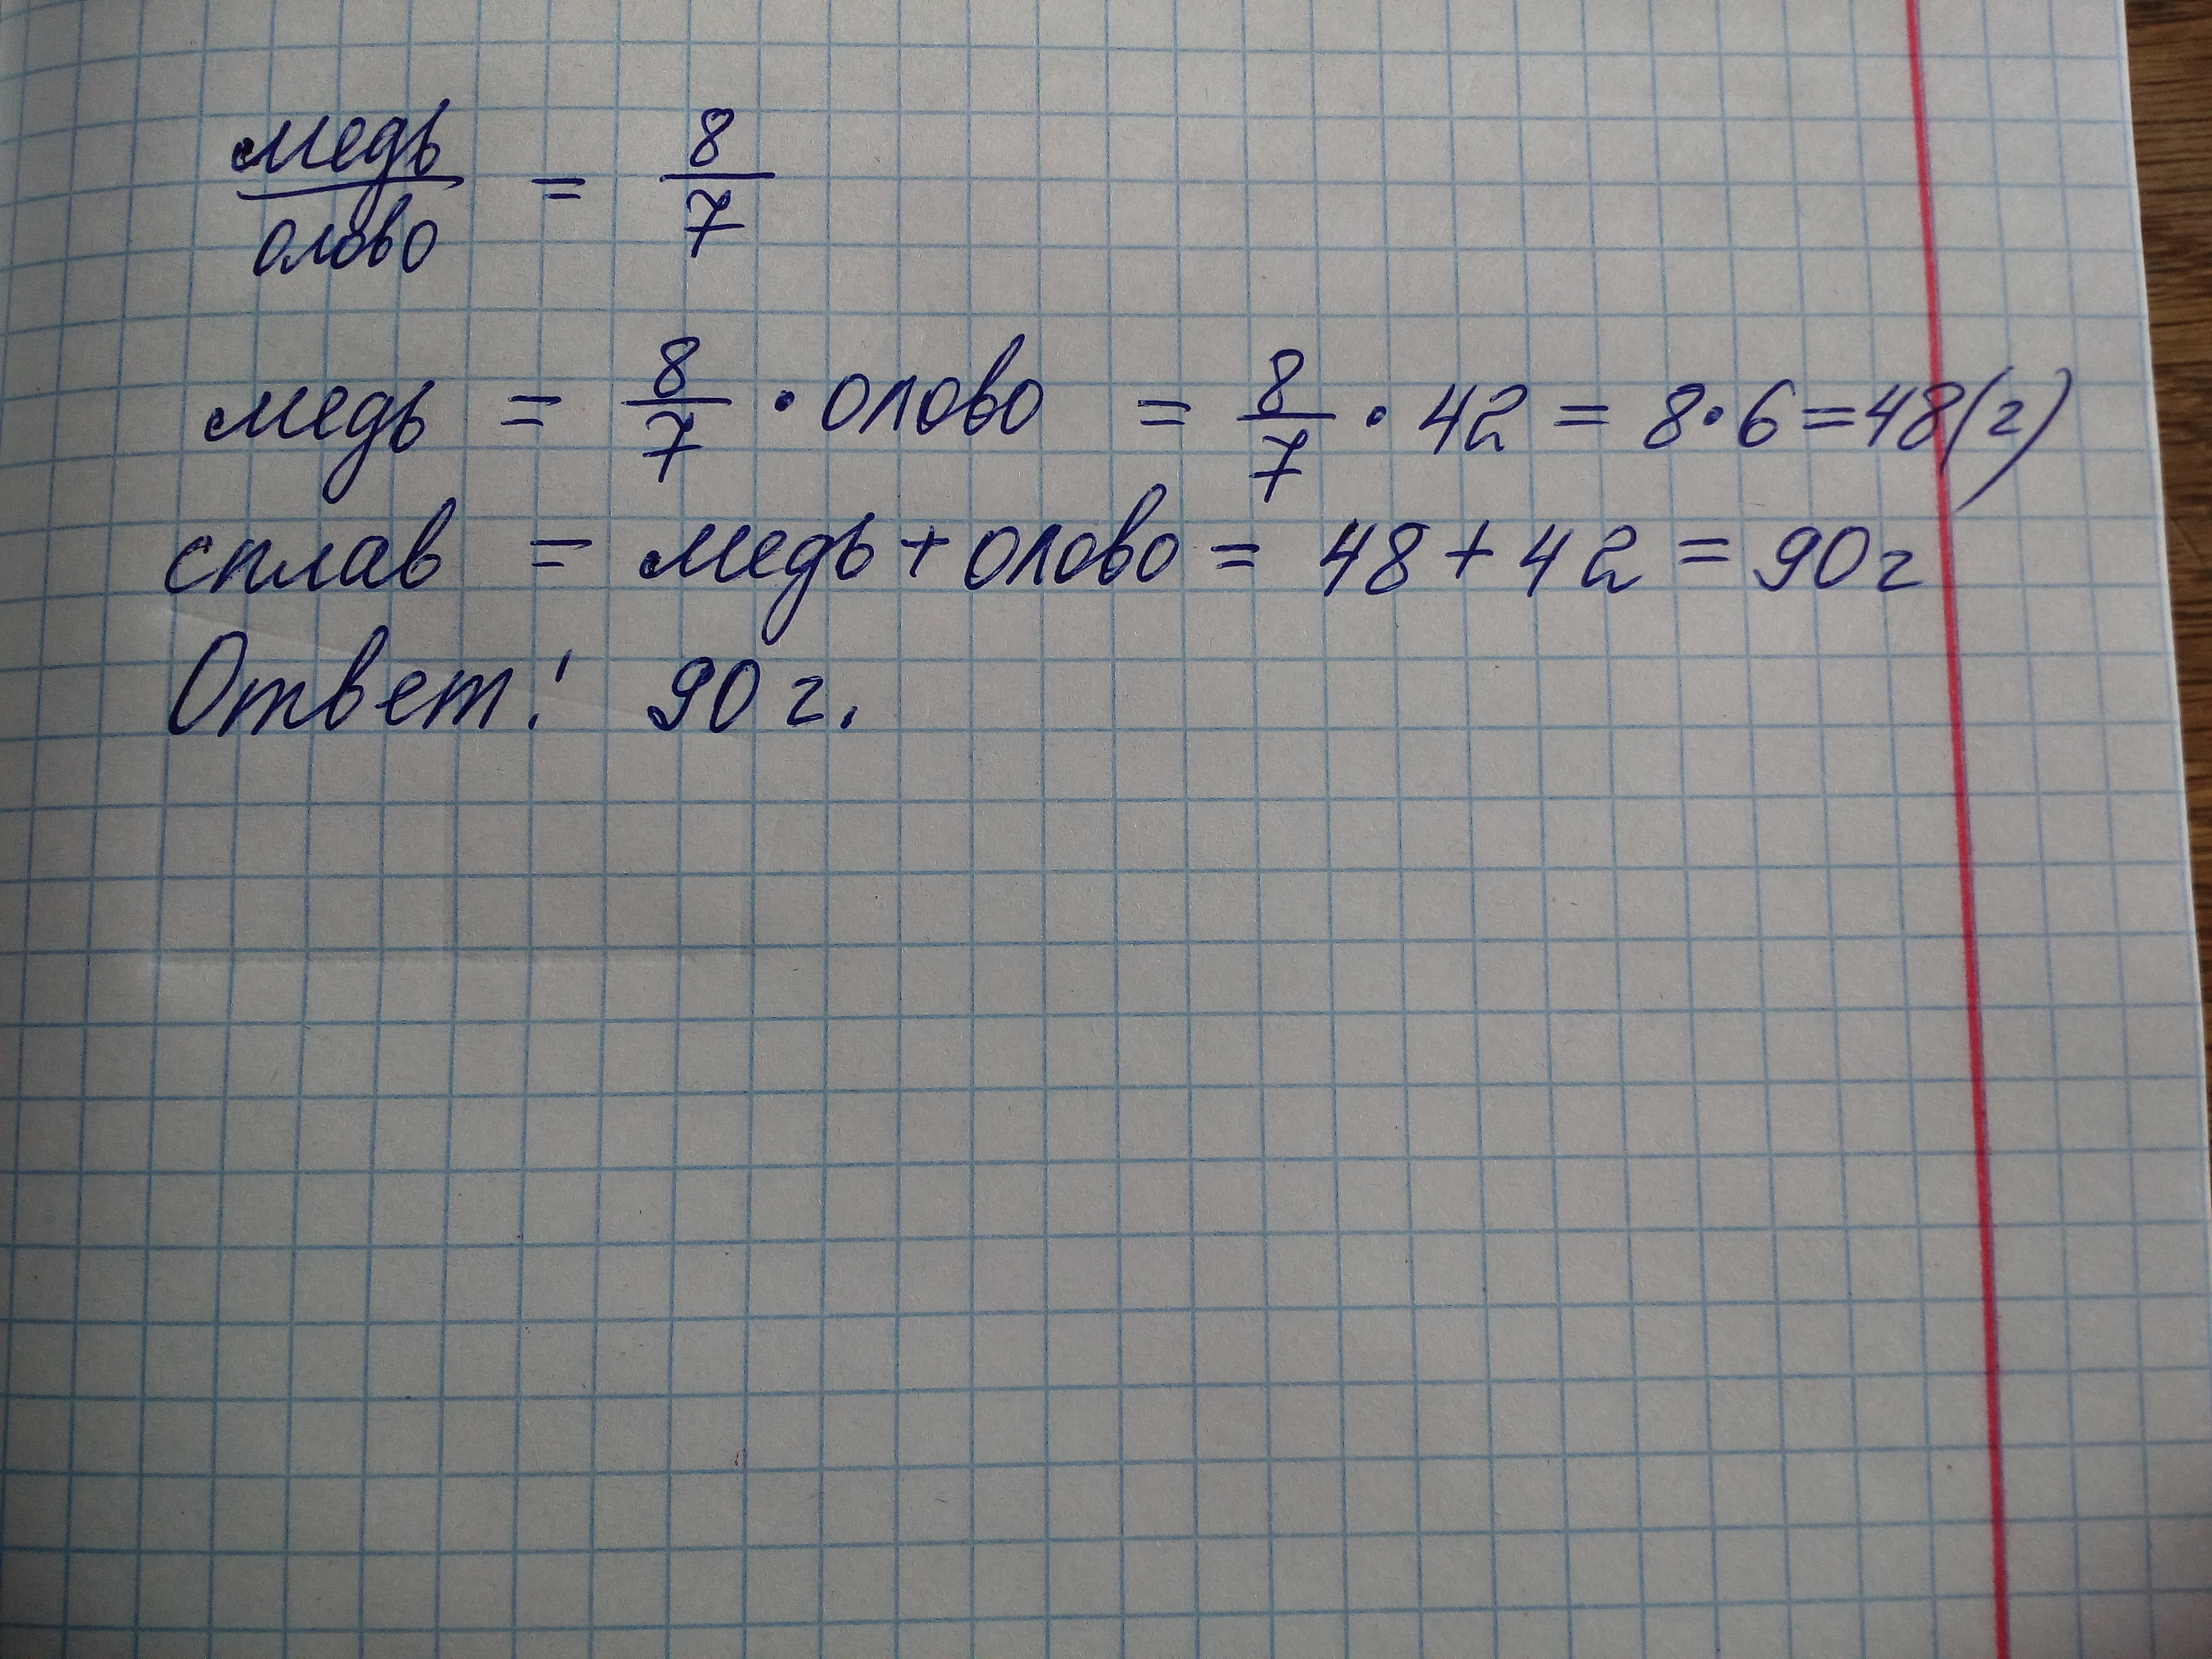 медь/олово = 8/7
медь = 8/7 · олово = 8/7 · 42 = 8·6=48(г)
сплав = медь+олово = 48+42 = 90г
Ответ: 90 г.